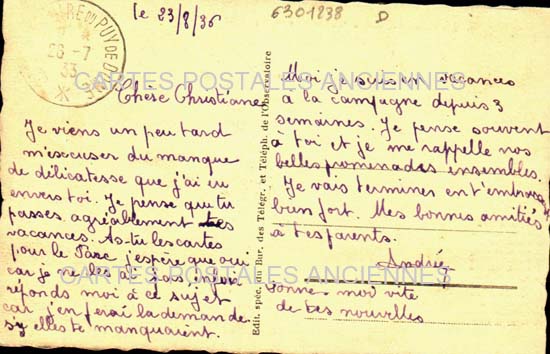 le 23/8/36
6301238 D
PUY DE DOME
26-7
33
Chère Christiane
Je viens un peu tard
m'excuser du manque
de délicatesse que j'ai eu
envers toi. Je pense que tu
passes agréablement tes
vacances. As-tu les cartes
pour le Parc j'espère que oui
car je ne les ai pas,
réponds moi à ce sujet
car j'en ferai la demande
s'y elles te manquaient.
Edit. spéc. du Bur. des Télégr. et Téléph. de l'Observatoire
Moi je suis en vacances
à la campagne depuis 3
semaines. Je pense souvent
à toi et je me rappelle nos
belles promenades ensembles.
Je vais terminer en t'embrassant
bien fort. Mes bonnes amitiés
à tes parents.
Andrée
Donne moi vite
de tes nouvelles
CARTES POSTALES ANCIENNES
CARTES POSTALES ANCIENNES